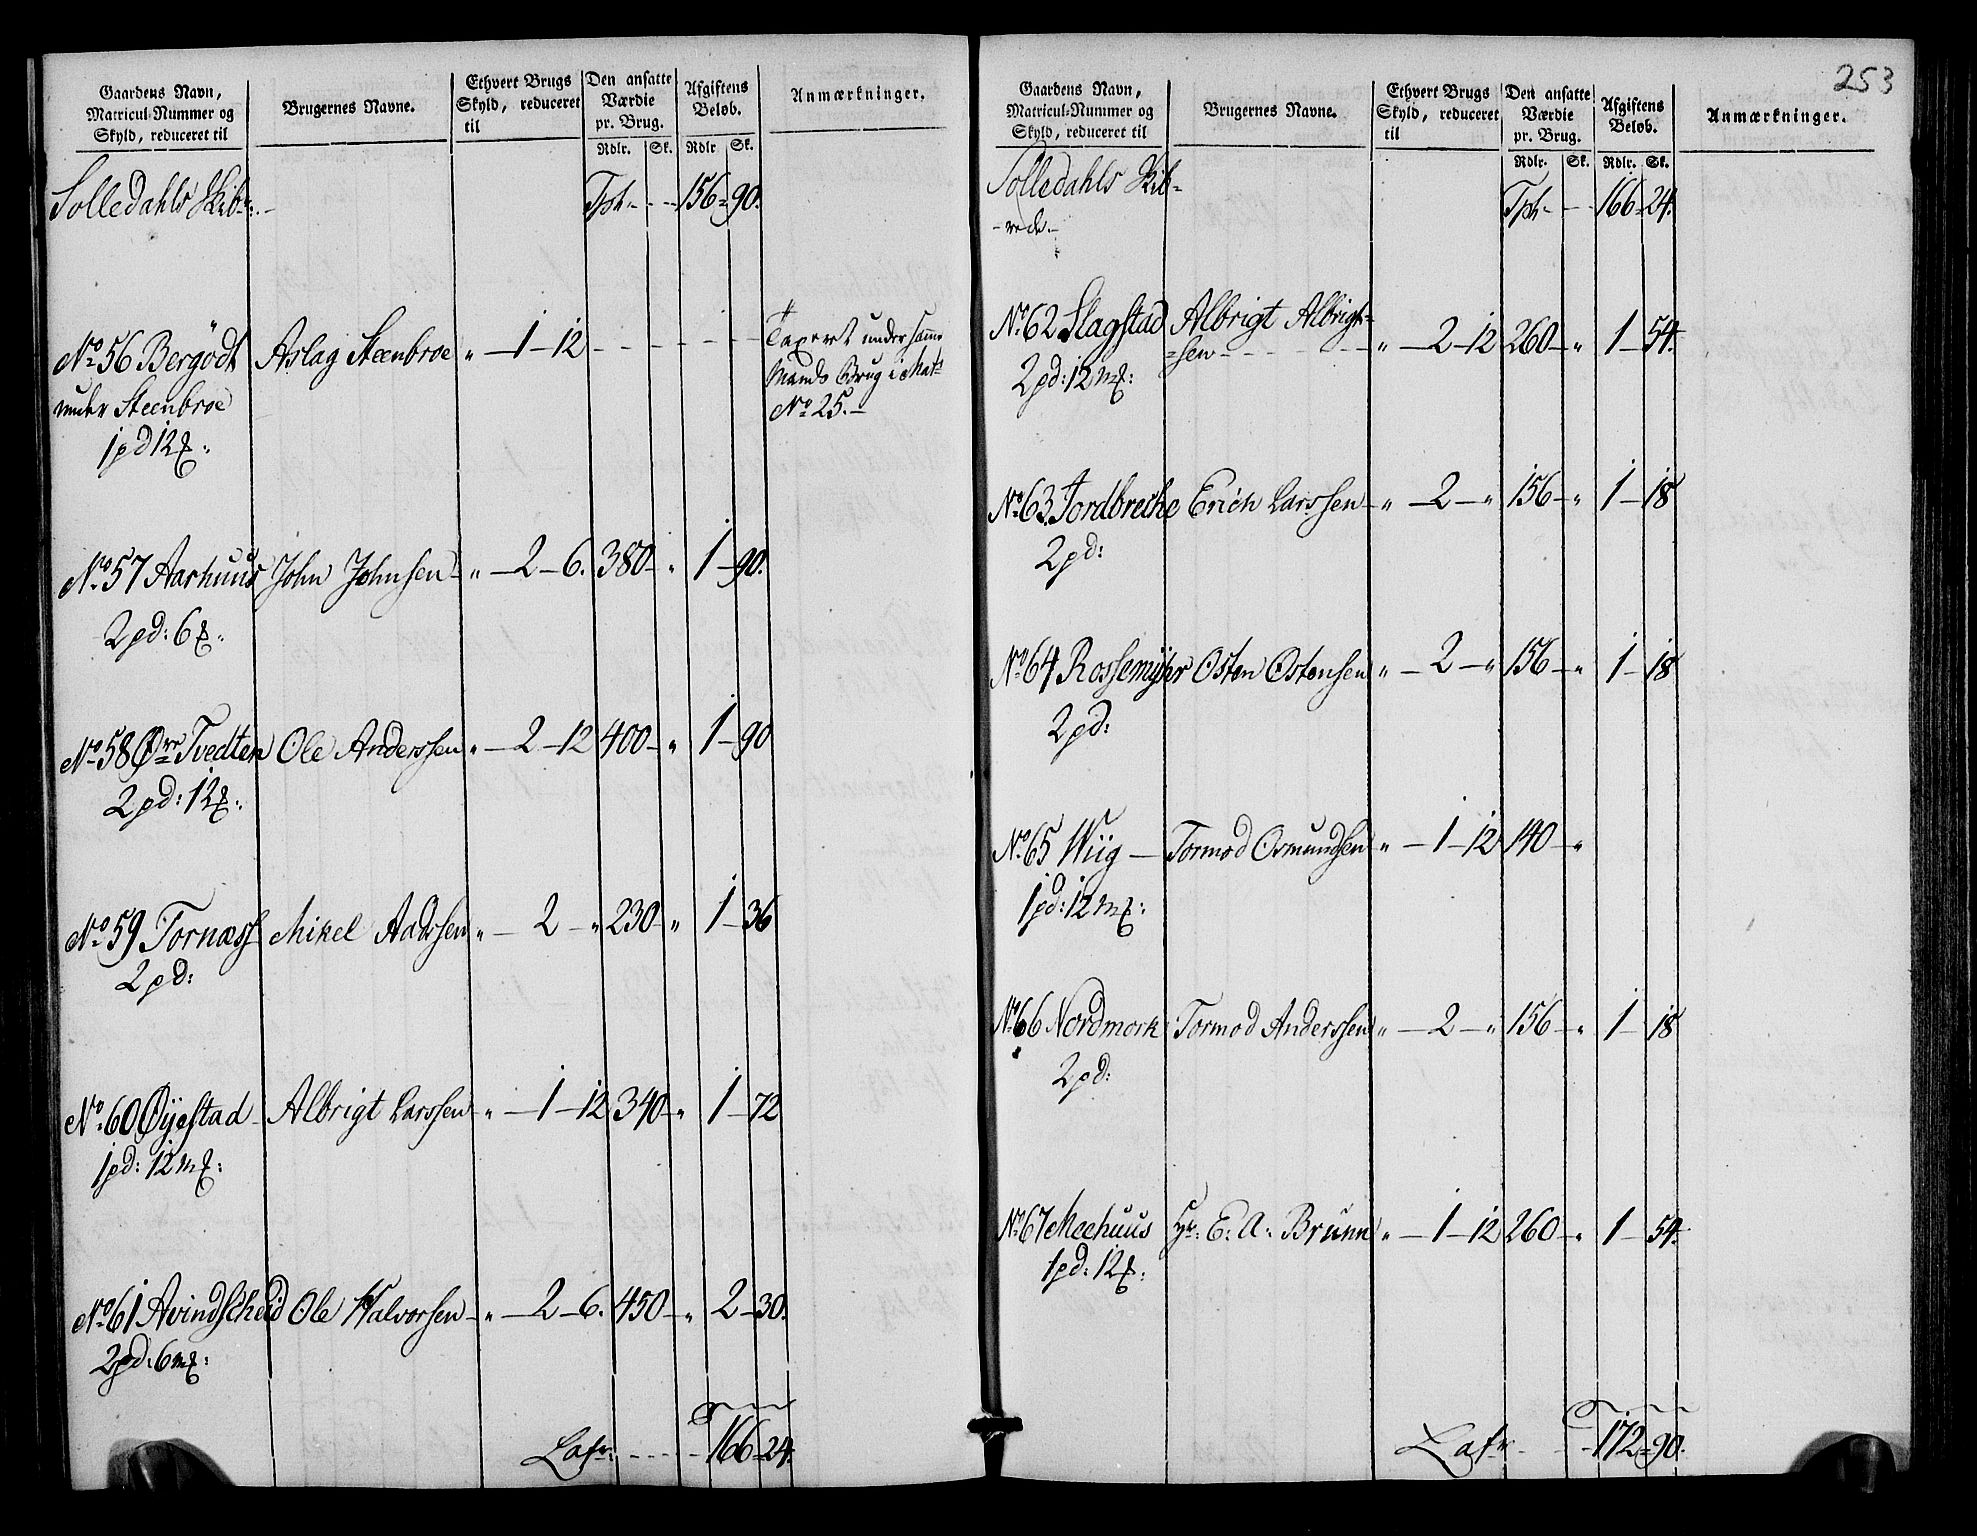 253
Gaardens Navn, Matricul-Nummer og Skyld, reduceret til
Brugernes Navne.
Ethvert Brugs Skyld, reduceret til
Den ansatte Værdie pr. Brug.
Rdlr. Sk.
Afgiftens Beløb.
Rdlr. Sk.
Anmærkninger.
Solledahls Skib-
Tpt. 156 90.
No 56 Bergødt Aslag Steenbroe " 1 12 Taxeret under samme
under Steenbroe Mands Brug i Mat:
1 pd 12 No 25.
No 57 Aarhuus John Johnsen " 2 6. 380 " 1 90.
2 pd: 6
No 58 Øvre Tvedten Ole Anderssen " 2 12 400 " 1 90
2 pd: 12
No 59 Tornæss Mikel Aadssen " 2 " 230 " 1 36
2 pd:
No 60 Øyestad Albrigt Larssen " 1 12 340 " 1 72
1 pd: 12 m
No 61 Avindscheid Ole Halvorsen " 2 6. 450 " 2 30.
2 pd: 6 m
Lats: 166 24.
Gaardens Navn, Matricul-Nummer og Skyld, reduceret til
Brugernes Navne.
Ethvert Brugs Skyld, reduceret til
Den ansatte Værdie pr. Brug.
Rdlr. Sk.
Afgiftens Beløb.
Rdlr. Sk.
Anmærkninger.
Solledahls Skib-
rede.
Tpt. 166 24.
No 62 Slagstad Albrigt Albrigt-
sen " 2 12 260 " 1 54.
2 pd: 12 m
No 63 Jordbrecke Erich Larssen " 2 " 156 " 1 18
2 pd:
No 64 Rossemyhr Osten Ostensen " 2 " 156 " 1 18
2 pd:
No 65 Wiig Tormod Osmundsen " 1 12 140 "
1 pd: 12 m
No 66 Nordmork Tormod Anderssen " 2 " 156 " 1 18
2 pd:
No 67 Meehuus Hr: E: A: Brunn " 1 12 260 " 1 54.
1 pd: 12
Lats 172 90.